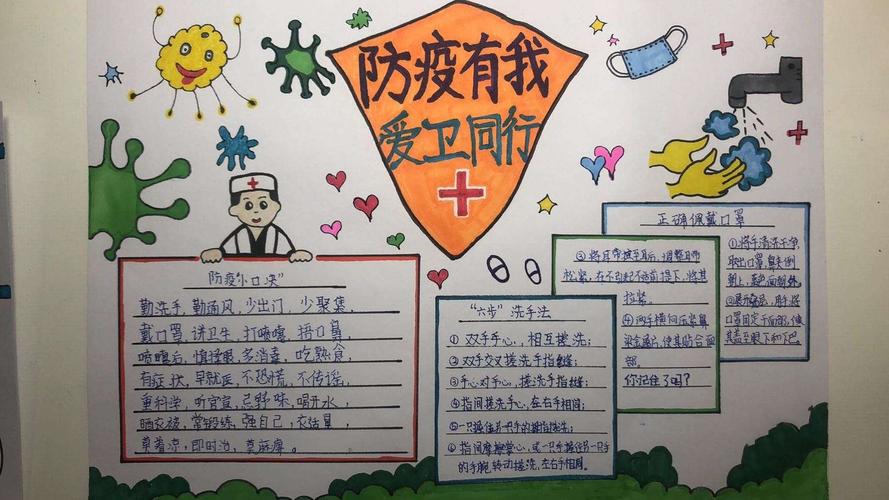 防疫有我
爱卫同行
防疫“小口决”
勤洗手，勤通风，少出门，少聚集，
戴口罩，讲卫生，打喷嚏，捂口鼻，
喷嚏后，慎揉眼，多消毒，吃熟食，
有症状，早就医，不恐慌，不传谣，
重科学，听官宣，忌野味，喝开水，
晒衣被，常锻练，强自己，衣话暴，
草着凉，即时治，莫麻庳。
“六步”洗手法
① 双手手心，相互搓洗；
② 双手交叉搓洗手指缝；
③ 手心对手心，搓洗手指缝；
④ 指间搓洗手心，左右手相同；
⑤ 一只手握住另一只手的拇指搓洗；
⑥ 指间摩擦掌心，或一只手握住另一只手
的手腕，转动搓洗，左右手相同。
③ 将耳带挂至耳后，调整耳带
松紧，在不引起不适前提下，将其
拉紧。
④ 两手横向压紧鼻
梁金属片，使其贴合面
部。
你记住了吗？
正确佩戴口罩
①将手清洗干净，
取出口罩，鼻夹侧
朝上，蓝色面朝外。
②展开
口罩固定于面部，使
其盖至眼下和下巴。